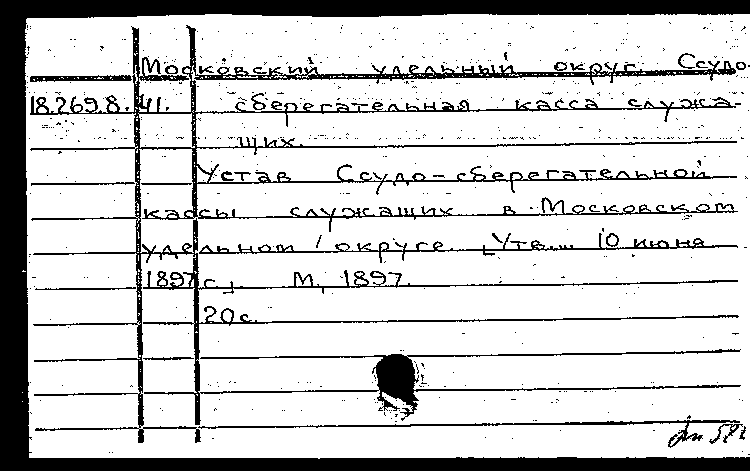 Московский удельный округ. Ссудо-
18.269.8.41. сберегательная касса служа-
щих.
Устав Ссудо-сберегательной
кассы служащих в Московском
удельном округе. Утв... 10 июня
1897 г. М., 1897.
20 с.